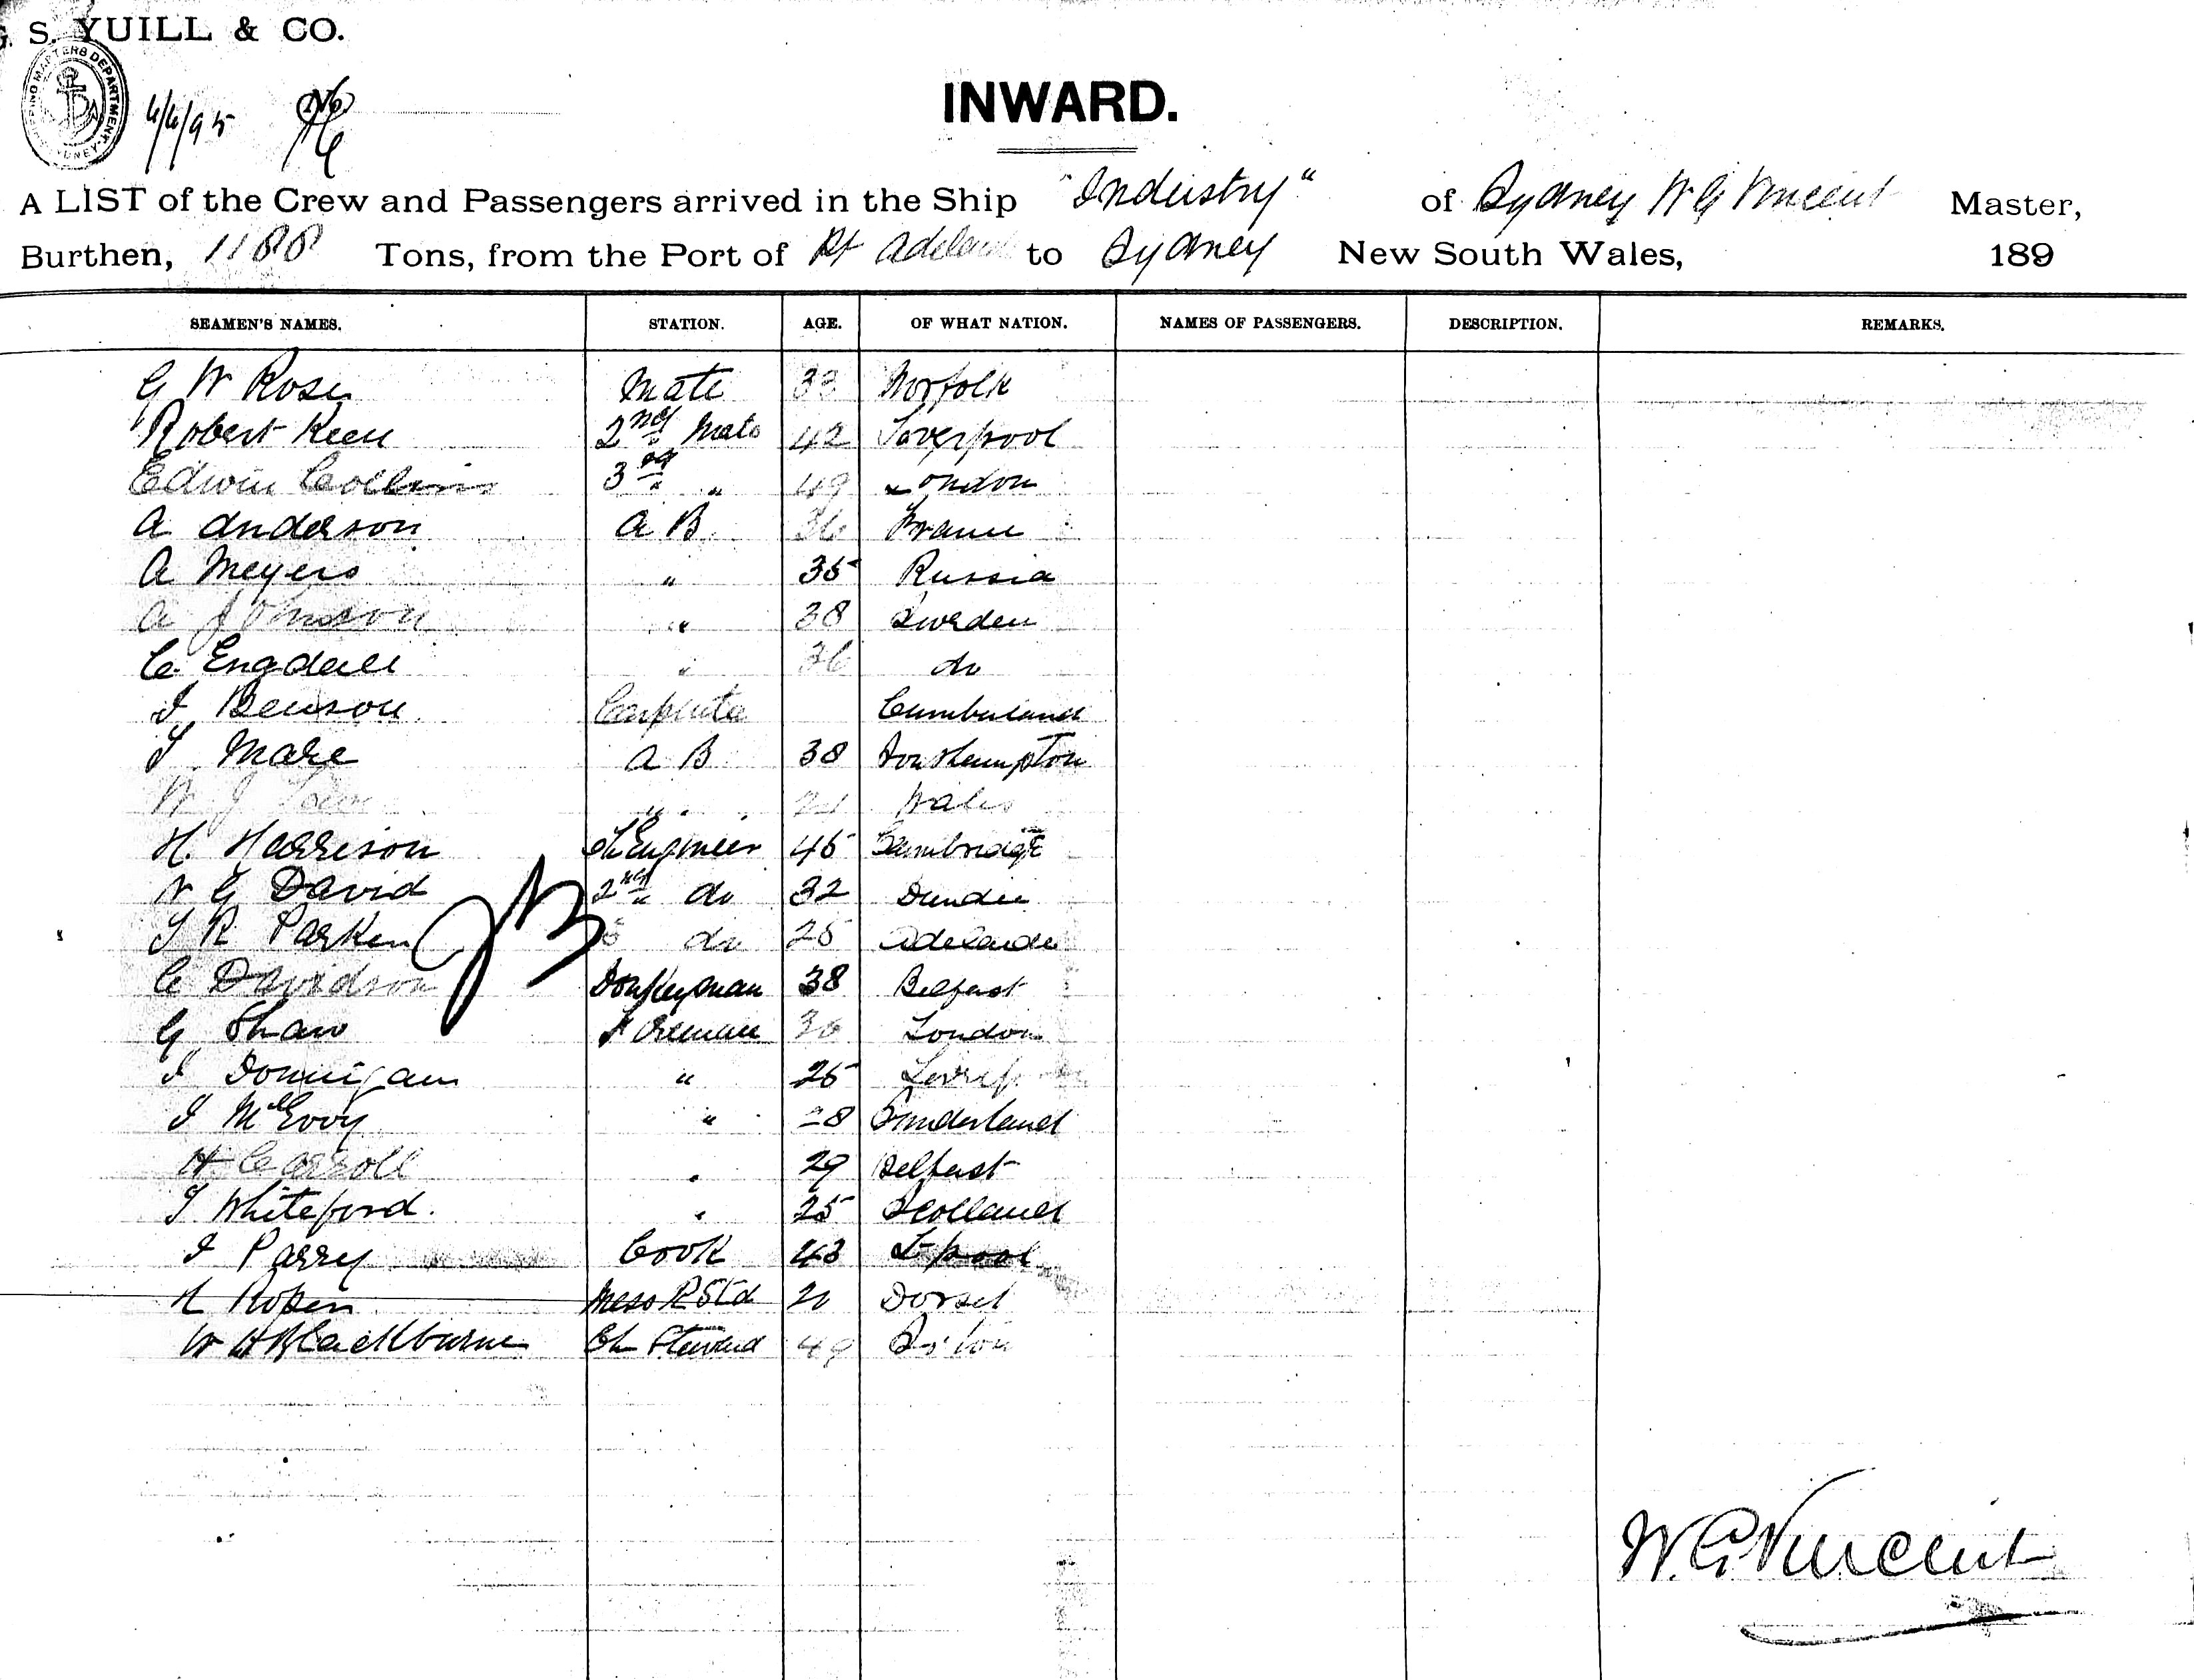 G. S. YUILL & CO.
SHIPPING MASTERS DEPARTMENT SYDNEY
4/4/95
INWARD.
A LIST of the Crew and Passengers arrived in the Ship "Industry" of Sydney W G Vincent Master,
Burthen, 1188 Tons, from the Port of Pt Adelaide to Sydney New South Wales, 189
SEAMEN'S NAMES. STATION. AGE. OF WHAT NATION. NAMES OF PASSENGERS. DESCRIPTION. REMARKS.
G W Rose Mate 33 Norfolk
Robert Keen 2nd Mate 42 Liverpool
Edwin Collins 3rd " 49 London
A Anderson A B 36 France
A Meyers " 35 Russia
A Johnson " 38 Sweden
C Engdall " 36 do
J Benson Carpenter Cumberland
J Mare A B 38 Southampton
W J " Wales
H. Harrison Ch Engineer 45 Cambridge
W G David 2nd do 32 Dundee
J R Parken 3 do 25 Adelaide
C Davidson Donkeyman 38 Belfast
G Shaw Fireman 30 London
J Donnigan " 25
J McEvoy " 28 Sunderland
H Carroll " 29 Belfast
J Whiteford. " 25 Scotland
J Parry Cook 43 L'pool
Mess R Std 20 Dorset
W H Blackburne Ch Steward 49
W. G. Vincent